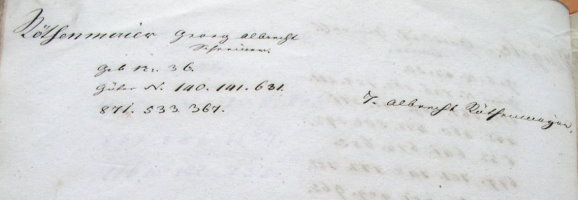 Röthenmaier Georg Albrecht
Schreiner.
Geb Nr. 36.
Güter N. 140. 141. 631.
871. 533. 367.
J. Albrecht Röthenmaijer.